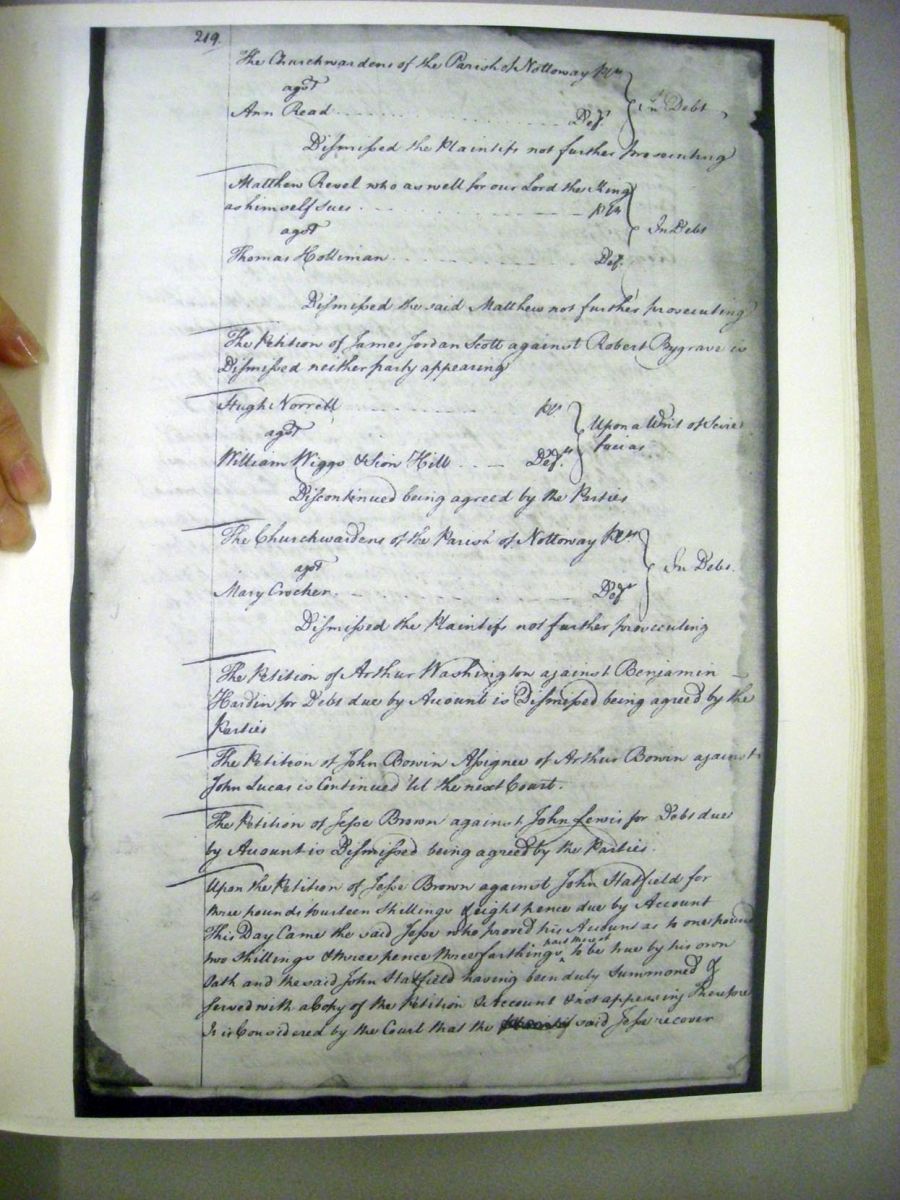 219.
The Churchwardens of the Parish of Nottoway Pltfs
agst
Ann Read Deft
In Debt
Dismissed the Plaintifs not further prosecuting
Matthew Revel who as well for our Lord the King
as himself sues Plt
agst
In Debt
Thomas Holliman Deft.
Dismissed the said Matthew not further prosecuting
The Petition of James Jordan Scott against Robert Bygrave is
Dismissed neither party appearing
Hugh Norrell Plt.
agst
Upon a Writ of Scire
facias
William Wiggs & Sion Hill Defts
Discontinued being agreed by the Parties
The Churchwardens of the Parish of Nottoway Pltfs
agst
In Debt.
Mary Crocker Deft
Dismissed the Plaintifs not further prosecuting
The Petition of Arthur Washington against Benjamin
Hardin for Debt due by Account is Dismissed being agreed by the
Parties
The Petition of John Bowin Assignee of Arthur Bowin against
John Lucas is Continued 'til the next Court.
The Petition of Jesse Brown against John Lewis for Debt due
by Account is Dismissed being agreed by the Parties.
Upon the Petition of Jesse Brown against John Statfield for
three pounds fourteen shillings & eight pence due by Account
This Day Came the said Jesse who proved his Account as to one pound
two shillings & three pence three farthings to be true by his own
Oath and the said John Statfield having been duly Summoned &
served with a Copy of the Petition & Account & not appearing Therefore
It is Considered by the Court that the said Jesse recover